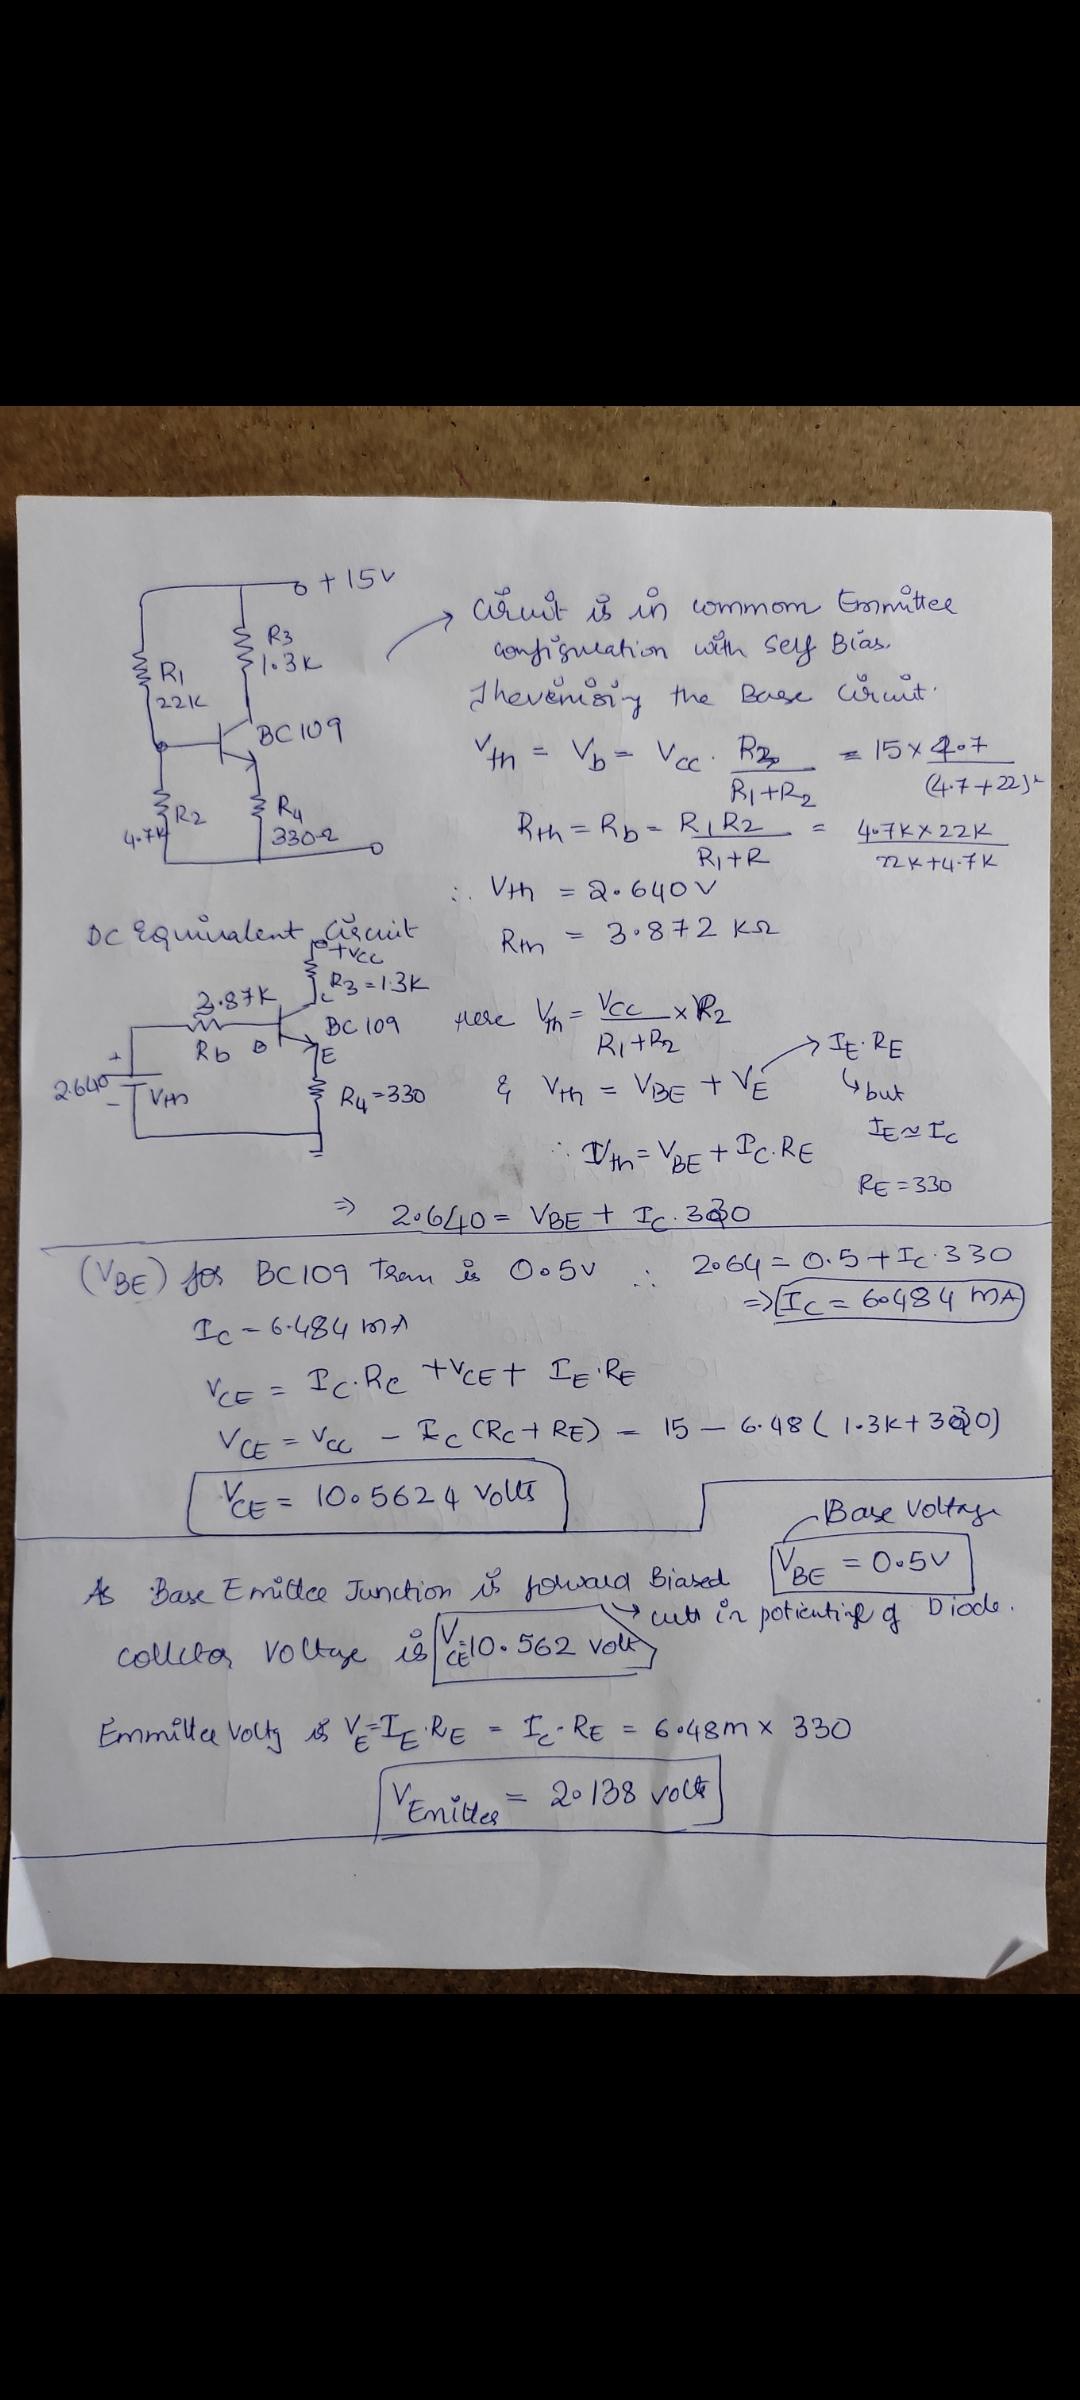 +15V
R3
1.3K
R1
22K
BC109
R2
4.7K
R4
330Ω
Circuit is in common Emmitter
configuration with Self Bias.
Thevenising the Base Circuit.
Vth = Vb = VCC . R2 / R1+R2 = 15 × 4.7 / (4.7+22)
Rth = Rb = R1R2 / R1+R = 4.7K×22K / 22K+4.7K
∴ Vth = 2.640V
Rth = 3.872 KΩ
DC Equivalent Circuit
+VCC
R3=1.3K
C
3.87K
BC109
Rb B
E
+
2.640
-
Vth
R4=330
Here Vth = VCC / R1+R2 × R2
& Vth = VBE + VE → IE.RE
↳ but
IE ≃ IC
∴ Vth = VBE + IC.RE
RE = 330
⇒ 2.640 = VBE + IC.330
(VBE) for BC109 Tran is 0.5V ∴ 2.64 = 0.5 + IC.330
⇒ IC = 6.484 mA
IC = 6.484 mA
VCE = IC.RC + VCE + IE.RE
VCE = VCC - IC (RC + RE) = 15 - 6.48 (1.3K+330)
VCE = 10.5624 Volts
Base Voltage
As Base Emitter Junction is forward Biased VBE = 0.5V
cutt in potiential of Diode.
collctor Voltage is VCE=10.562 volt
Emmitter Voltg is VE=IE.RE = IC.RE = 6.48m × 330
VEmitter = 2.138 volts